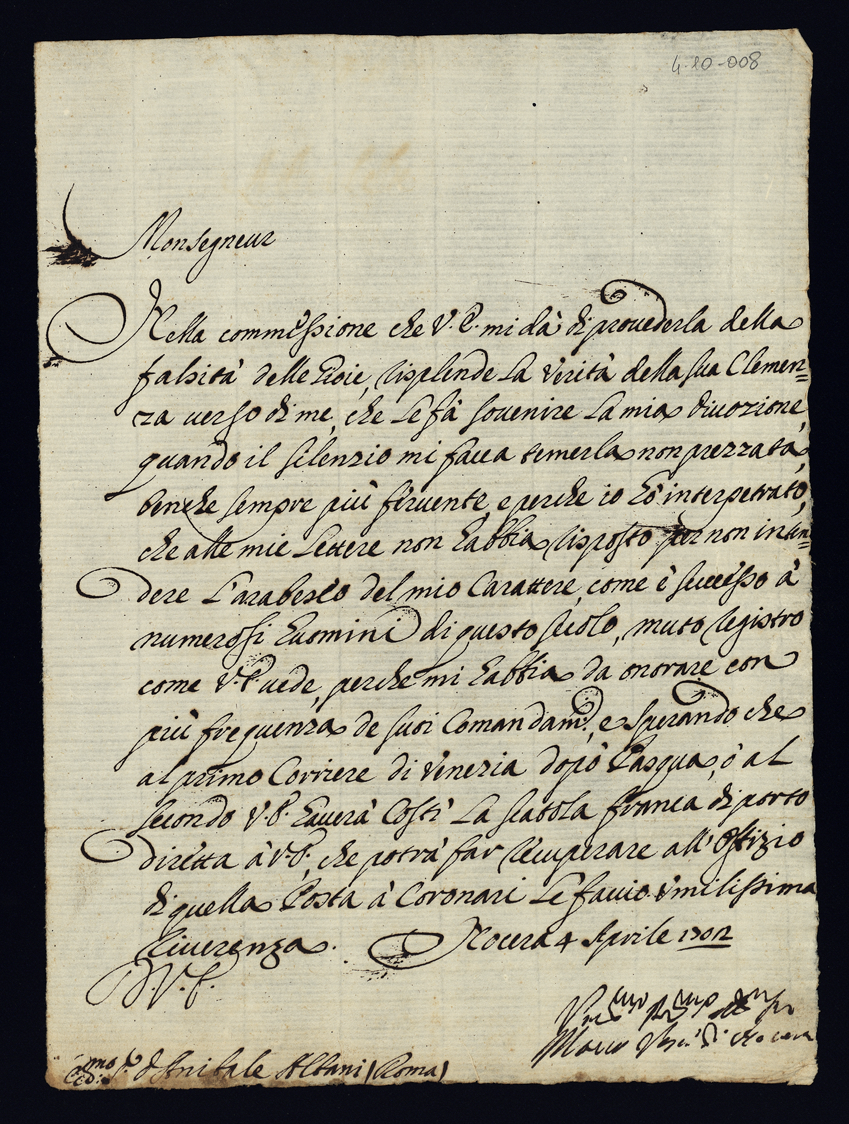 4-20-008
Monsegneur
Nella commessione che V.E. mi dà di prouederla della
falsità delle Gioie, risplende la verità della sua Clemen=
za verso di me, che le fà souenire la mia divozione,
quando il silenzio mi facea temerla non prezzata,
benche sempre più feruente, e perche io hò interpetrato,
che alle mie lettere non habbia risposto per non inten=
dere l'arabesco del mio Carattere, come è successo à
numerosi huomini di questo secolo, muto registro
come V.E. vede, perche mi habbia da onorare con
più frequenza de suoi Comandam.ti, e sperando che
al primo Corriere di Venezia dopò Pasqua, ò al
secondo V.E. hauerà costì la scatola franca di porto
diretta à V.E. che potrà far recuperare all'Offizio
di quella Posta à Coronari le faccio vmilissima
riuerenza. Nocera 4 Aprile 1702
D.V.E.
Marco Vesc.o di Nocera
d'Anibale Albani (Roma)